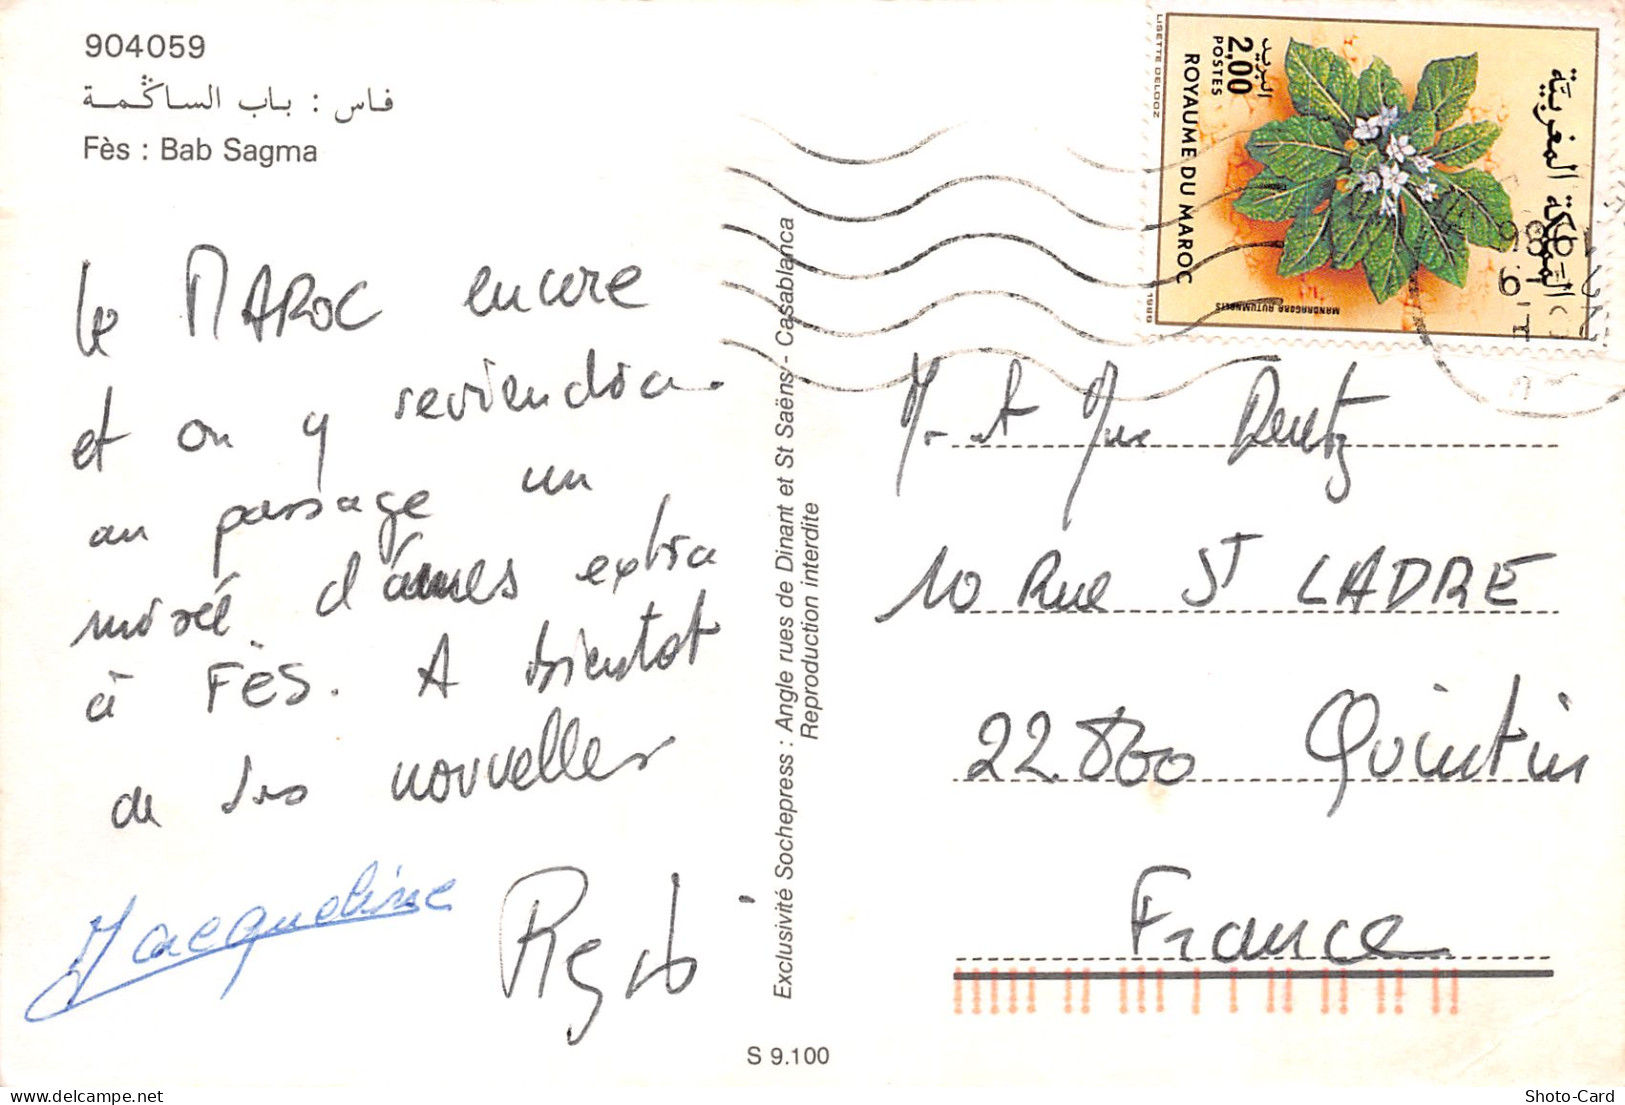 904059
فاس : باب الساݣمة
Fès : Bab Sagma
le MAROC encore
et on y reviendra.
au passage un
d'ames extra
à FèS. A bientot
de nouvelles
Jacqueline
Exclusivité Sochepress : Angle rues de Dinant et St Saëns - Casablanca
Reproduction interdite
S 9.100
LISETTE DELOOZ
البريد
2,00
POSTES
ROYAUME DU MAROC
المملكة المغربية
MANDRAGORA AUTUMNALIS
1989
M. et Mme
10 Rue ST LADRE
22800 Quintin
France
Shoto-Card